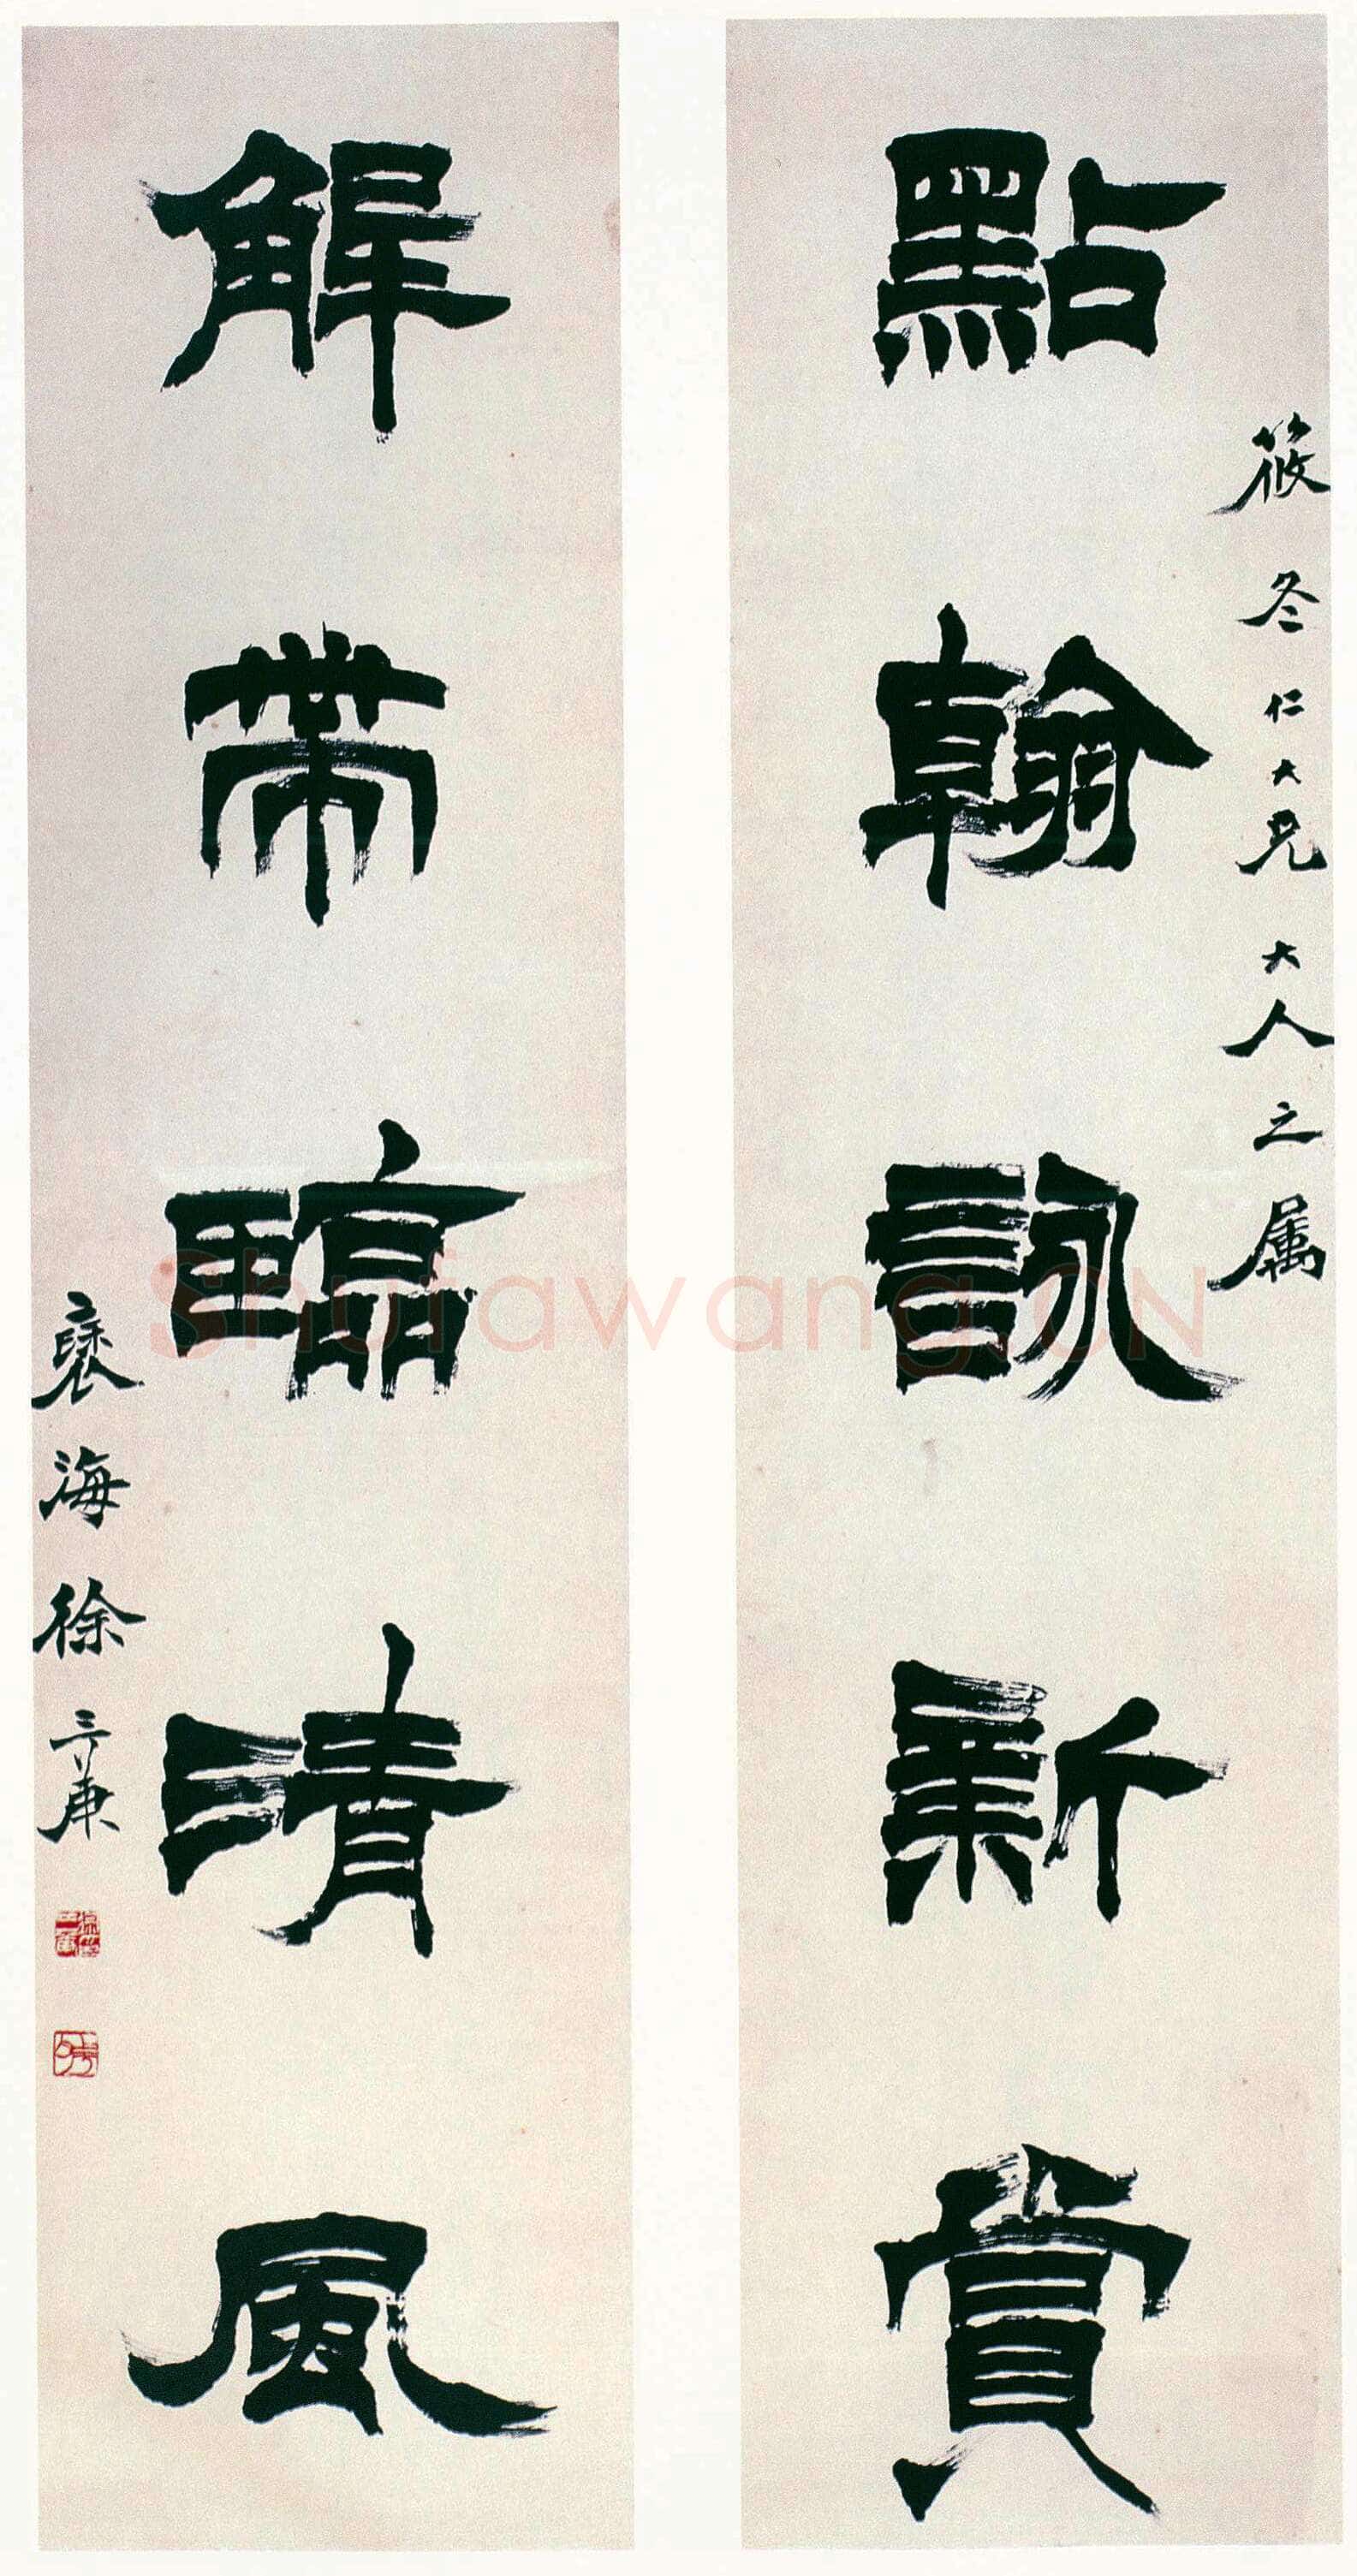 筱冬仁大兄大人之属
點翰詠新賞
解帶臨晴風
褎海徐三庚
Shufawang.CN